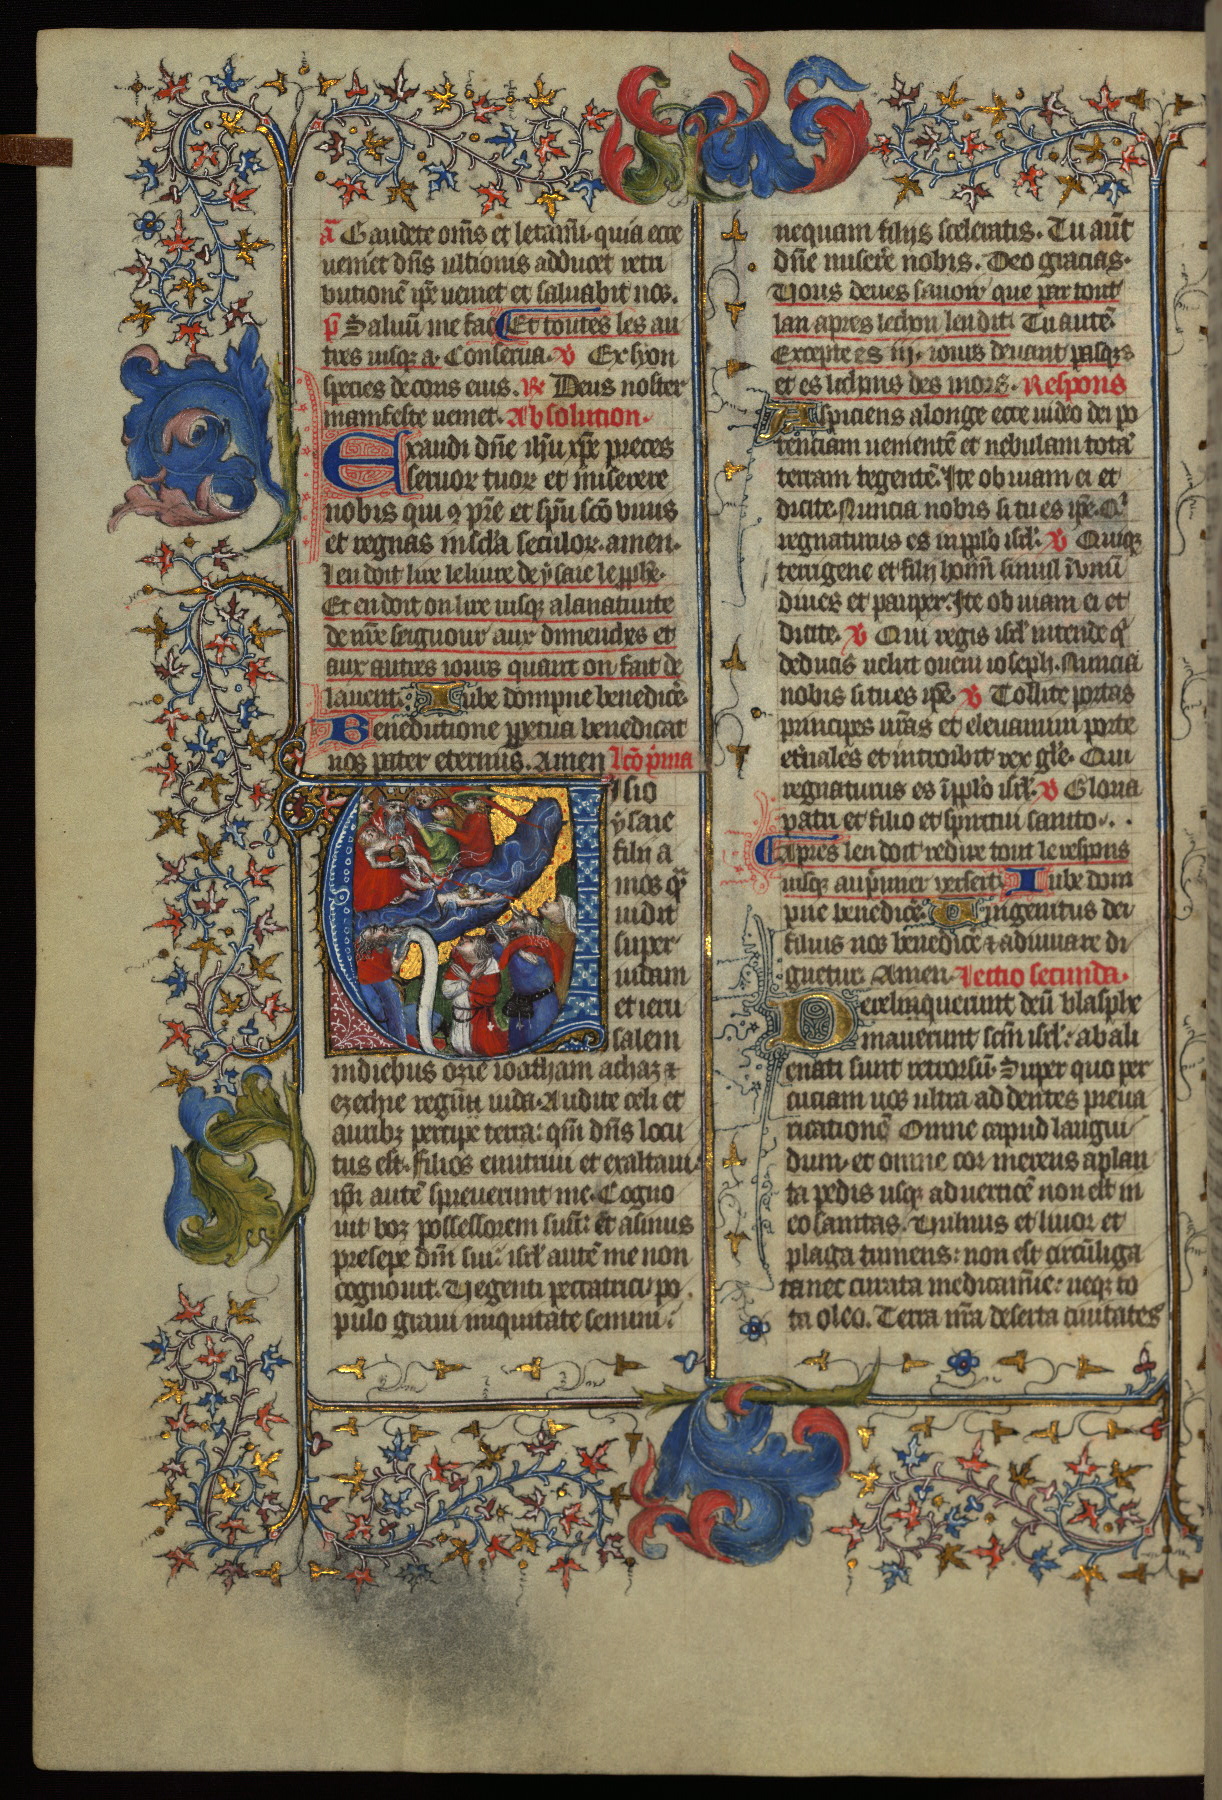 ā Gaudete om̄s et letam̄i. quia ecce
ueniet dn̄s ultionis adducet retri
butionē ip̄e ueniet et saluabit nos.
p̄ Saluū me fac Et toutes les au
tres iusqz a. Conserua. V Ex syon
species decoris eius. R Deus noster
manifeste ueniet. Absolution.
Exaudi dn̄e ih̄u xp̄e preces
seruor tuor et miserere
nobis qui 9 pr̄e et sp̄u sc̄o viuis
et regnas in sc̄la seculor. amen.
Len doit lire le liure de ysaie le pphē.
Et en doit on lire iusqz a la natiuite
de nr̄e seigneur aux dimenches et
aux autres iours quant on fait de
lauent. Iube dompne benedicē.
Benedictione ppetua benedicat
nos pater eternus. Amen Lc̄o p̄ma
Uisio
ysaie
filii a
mos q̄
uidit
super
iudam
et ieru
salem
in diebus ozie ioatham achaz et
ezechie regūm iuda. Audite celi et
auribz percipe terra: qm̄ dn̄s locu
tus est. Filios enutriui et exaltaui:
ip̄i autē spreuerunt me. Cogno
uit boz possessorem suū: et asinus
presepe dn̄i sui: isrl̄ autē me non
cognouit. Ue genti peccatrici po
pulo graui iniquitate semini
nequam filiis sceleratis. Tu aut̄
dn̄e misere nobis. Deo gracias.
Uous deues sauoir que par tout
lan apres lechon len dit. Tu autē.
Excepte es iij. iours deuant pasqzs
et es lechons des mors. Respons
Aspiciens a longe ecce uideo dei po
tenciam uenientē et nebulam totā
terram tegentē. Ite obuiam ei et
dicite. Nuncia nobis si tu es ip̄e. Qi
regnaturus es in pplo isrl̄. V Quiqz
terrigene et filij homī simul ī unū
diues et pauper. Ite obuiam ei et
dicite. V Qui regis isrl̄ intende q̄
deducis uelut ouem ioseph. Nuncia
nobis si tu es ip̄e. V Tollite portas
principes ur̄as et eleuamini porte
et̄nales et introibit rex gl̄e. Qui
regnaturus es ī pplo isrl̄. V Gloria
patri et filio et spiritui sancto.
Apres len doit redire tout le respons
iusqz au primer verset. Iube dom
pne benedicē. Unigenitus dei
filius nos benedicē et adiuuare di
gnetur. Amen. Lectio secunda.
Dereliquerunt deū blasphe
mauerunt scm̄ isrl̄: abali
enati sunt retrorsū. Super quo per
cuciam uos ultra addentes preua
ricationē Omne capud langui
dum. et omne cor merens a plan
ta pedis usqz ad uerticē non est in
eo sanitas. Uulnus et liuor et
plaga tumens: non est circūliga
ta nec curata medicam̄ie: neqz fo
ta oleo. Terra ur̄a deserta ciuitates